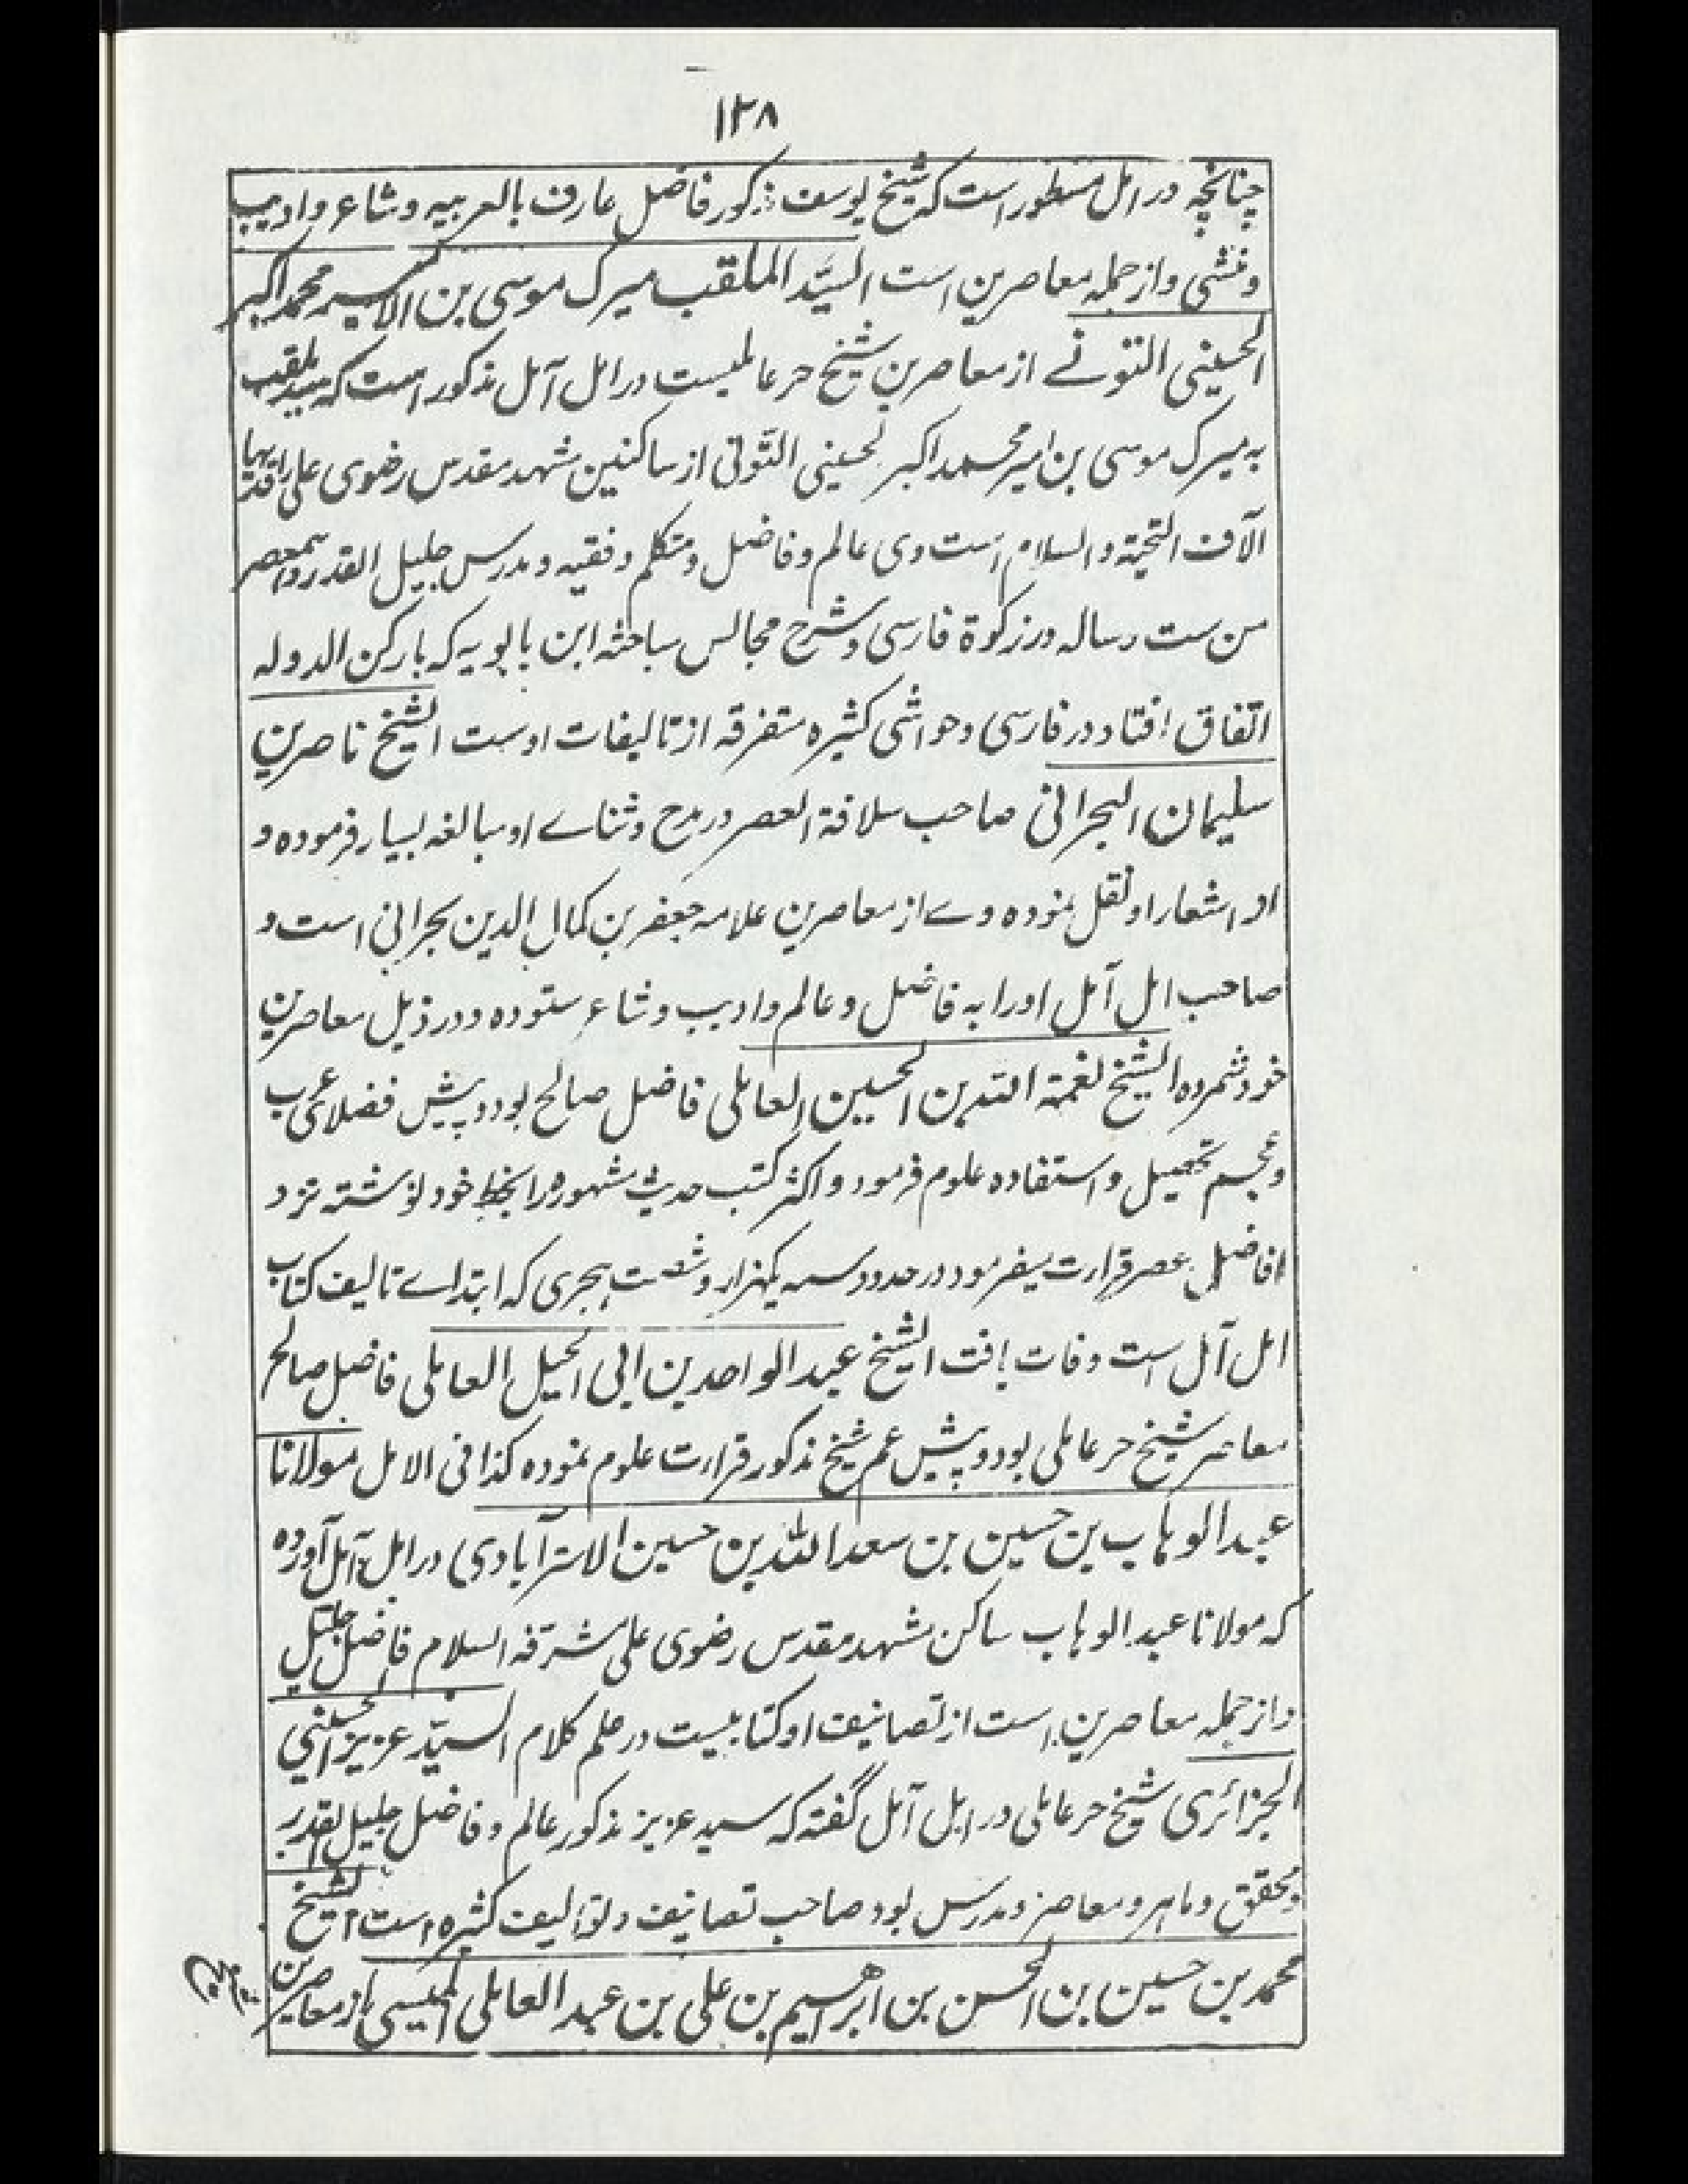 ۱۲۸
چنانچه در امل مسطور است که شیخ یوسف مذکور فاضل عارف بالعربیه و شاعر و ادیب
و منشی و از جمله معاصرین است السیّد الملقب میرک موسی بن الامیر محمد اکبر
الحسینی التونے از معاصرین شیخ حر عاملیست در امل آمل مذکور است که سید ملقب
به میرک موسی بن امیر محمد اکبر الحسینی التّونی از ساکنین مشهد مقدس رضوی علی راقدیها
الآف التحیة و السلام است وی عالم و فاضل و متکلم و فقیه و مدرس جلیل القدر و همعصر
من ست رساله در زکوة فارسی و شرح مجالس مباحثه ابن بابویه که با رکن الدوله
اتّفاق افتاد در فارسی و حواشی کثیره متفرقه از تالیفات اوست الشیخ ناصر بن
سلیمان البحرانی صاحب سلافة العصر در مدح و ثناے او مبالغه بسیار فرموده و
از اشعار او نقل نموده وے از معاصرین علامه جعفر بن کمال الدین بحرانی است و
صاحب امل آمل او را به فاضل و عالم و ادیب و شاعر ستوده و در ذیل معاصرین
خود شمرده الشیخ نعمة الله بن الحسین العاملی فاضل صالح بود و پیش فضلای عرب
و عجم تحصیل و استفاده علوم فرمود و اکثر کتب حدیث مشهوره را بخط خود نوشته نزد
افاضل عصر قرارت میفرمود در حدود سنه یکهزار و شصت هجری که ابتداے تالیف کتاب
امل آمل است وفات یافت الشیخ عبد الواحد بن ابی الجیل العاملی فاضل صالح
معاصر شیخ حر عاملی بود و پیش عم شیخ مذکور قرارت علوم نموده کذا فی الامل مولانا
عبد الوهاب بن حسین بن سعد الله بن حسین الاسترآبادی در امل آمل آورده
که مولانا عبد الوهاب ساکن مشهد مقدس رضوی علی مشرّفه السلام فاضل جلیل
و از جمله معاصرین است از تصانیف او کتابیست در علم کلام السیّد عزیز الحسینی
الجزائری شیخ حر عاملی در امل آمل گفته که سید عزیز مذکور عالم و فاضل جلیل القدر
و محقق و ماهر و معاصر و مدرس بود صاحب تصانیف و توالیف کثیره است الشیخ
محمد بن حسین بن الحسن بن ابراهیم بن علی بن عبد العالی المیسی از معاصرین